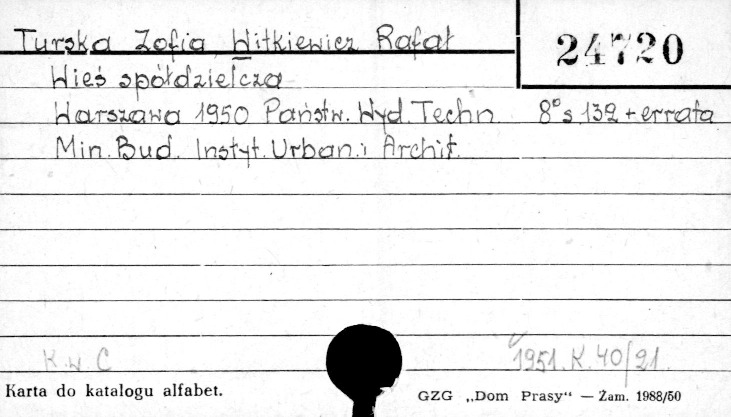 Turska Zofia, Witkiewicz Rafał
24720
Wieś spółdzielcza
Warszawa 1950 Państw. Wyd. Techn. 8° s 132 + errata
Min. Bud. Instyt. Urban. i Archit.
K. w C
1951. K. 40/21.
Karta do katalogu alfabet.
GZG „Dom Prasy“ — Zam. 1988/50